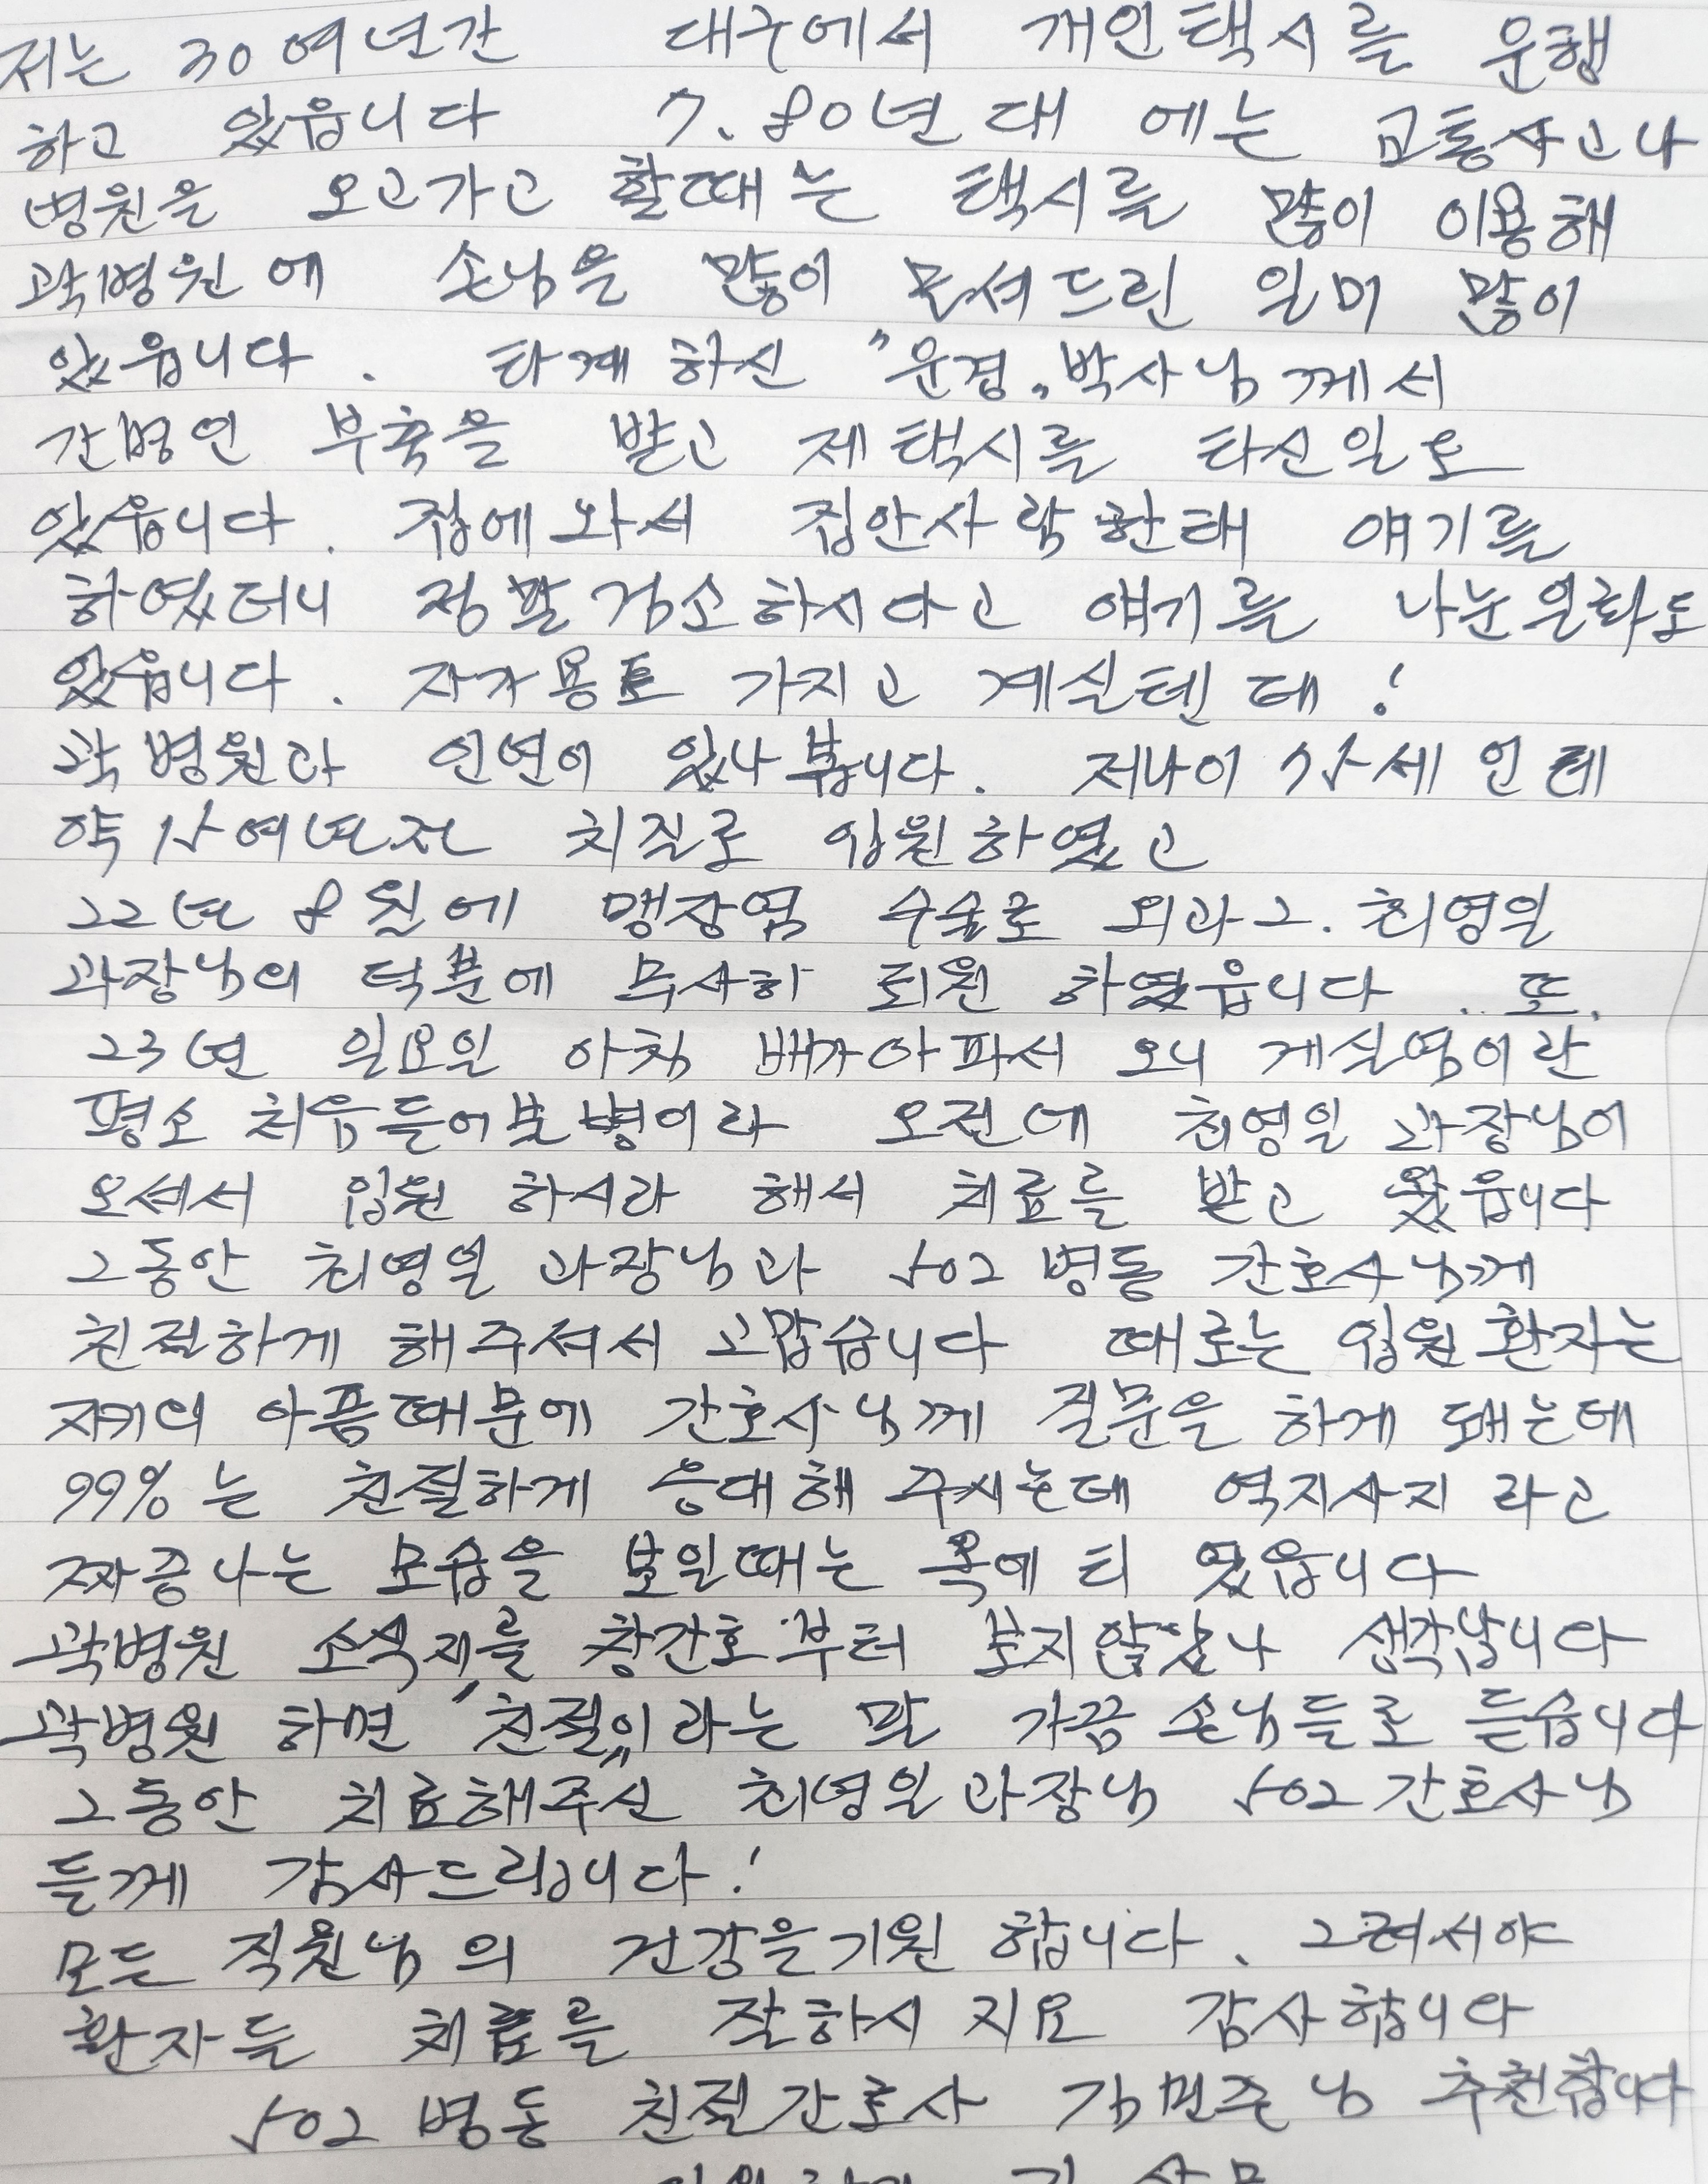 저는 30여년간 대구에서 개인택시를 운행
하고 있읍니다 7.80년대 에는 교통사고나
병원을 오고가고 할때는 택시를 많이 이용해
곽병원에 손님을 많이 모셔드린 일이 많이
있읍니다. 타계하신 "운경" 박사님께서
간병인 부축을 받고 제택시를 타신일도
있읍니다. 집에와서 집안사람한태 얘기를
하였더니 정말검소하시다고 얘기를 나눈일화도
있읍니다. 자가용도 가지고 계실텐데!
곽병원과 인연이 있나봅니다. 저나이 75세인데
약 15여년전 치질로 입원하였고
22년 8월에 맹장염 수술로 외과2. 최영일
과장님의 덕분에 무사히 퇴원 하였읍니다. 또.
23년 일요일 아침 배가아파서 오니 게실염이란
평소 처음들어본병이라 오전에 최영일 과장님이
오셔서 입원 하시라 해서 치료를 받고 왔읍니다
그동안 최영일 과장님과 502 병동 간호사님께
친절하게 해주셔서 고맙습니다 때로는 입원환자는
자기의 아픔때문에 간호사님께 질문을 하게 돼는데
99%는 친절하게 응대해 주시는데 역지사지 라고
짜증나는 모습을 보일때는 옥에 티 였읍니다
곽병원 소식지를 창간호부터 보지않았나 생각납니다
곽병원 하면 "친절"이라는 말 가끔 손님들로 듣습니다
그동안 치료해주신 최영일과장님 502간호사님
들께 감사드립니다!
모든 직원님의 건강을기원 합니다. 그려서야
환자들 치료를 잘하시 지요 감사합니다
502 병동 친절간호사 김민준님 추천합니다